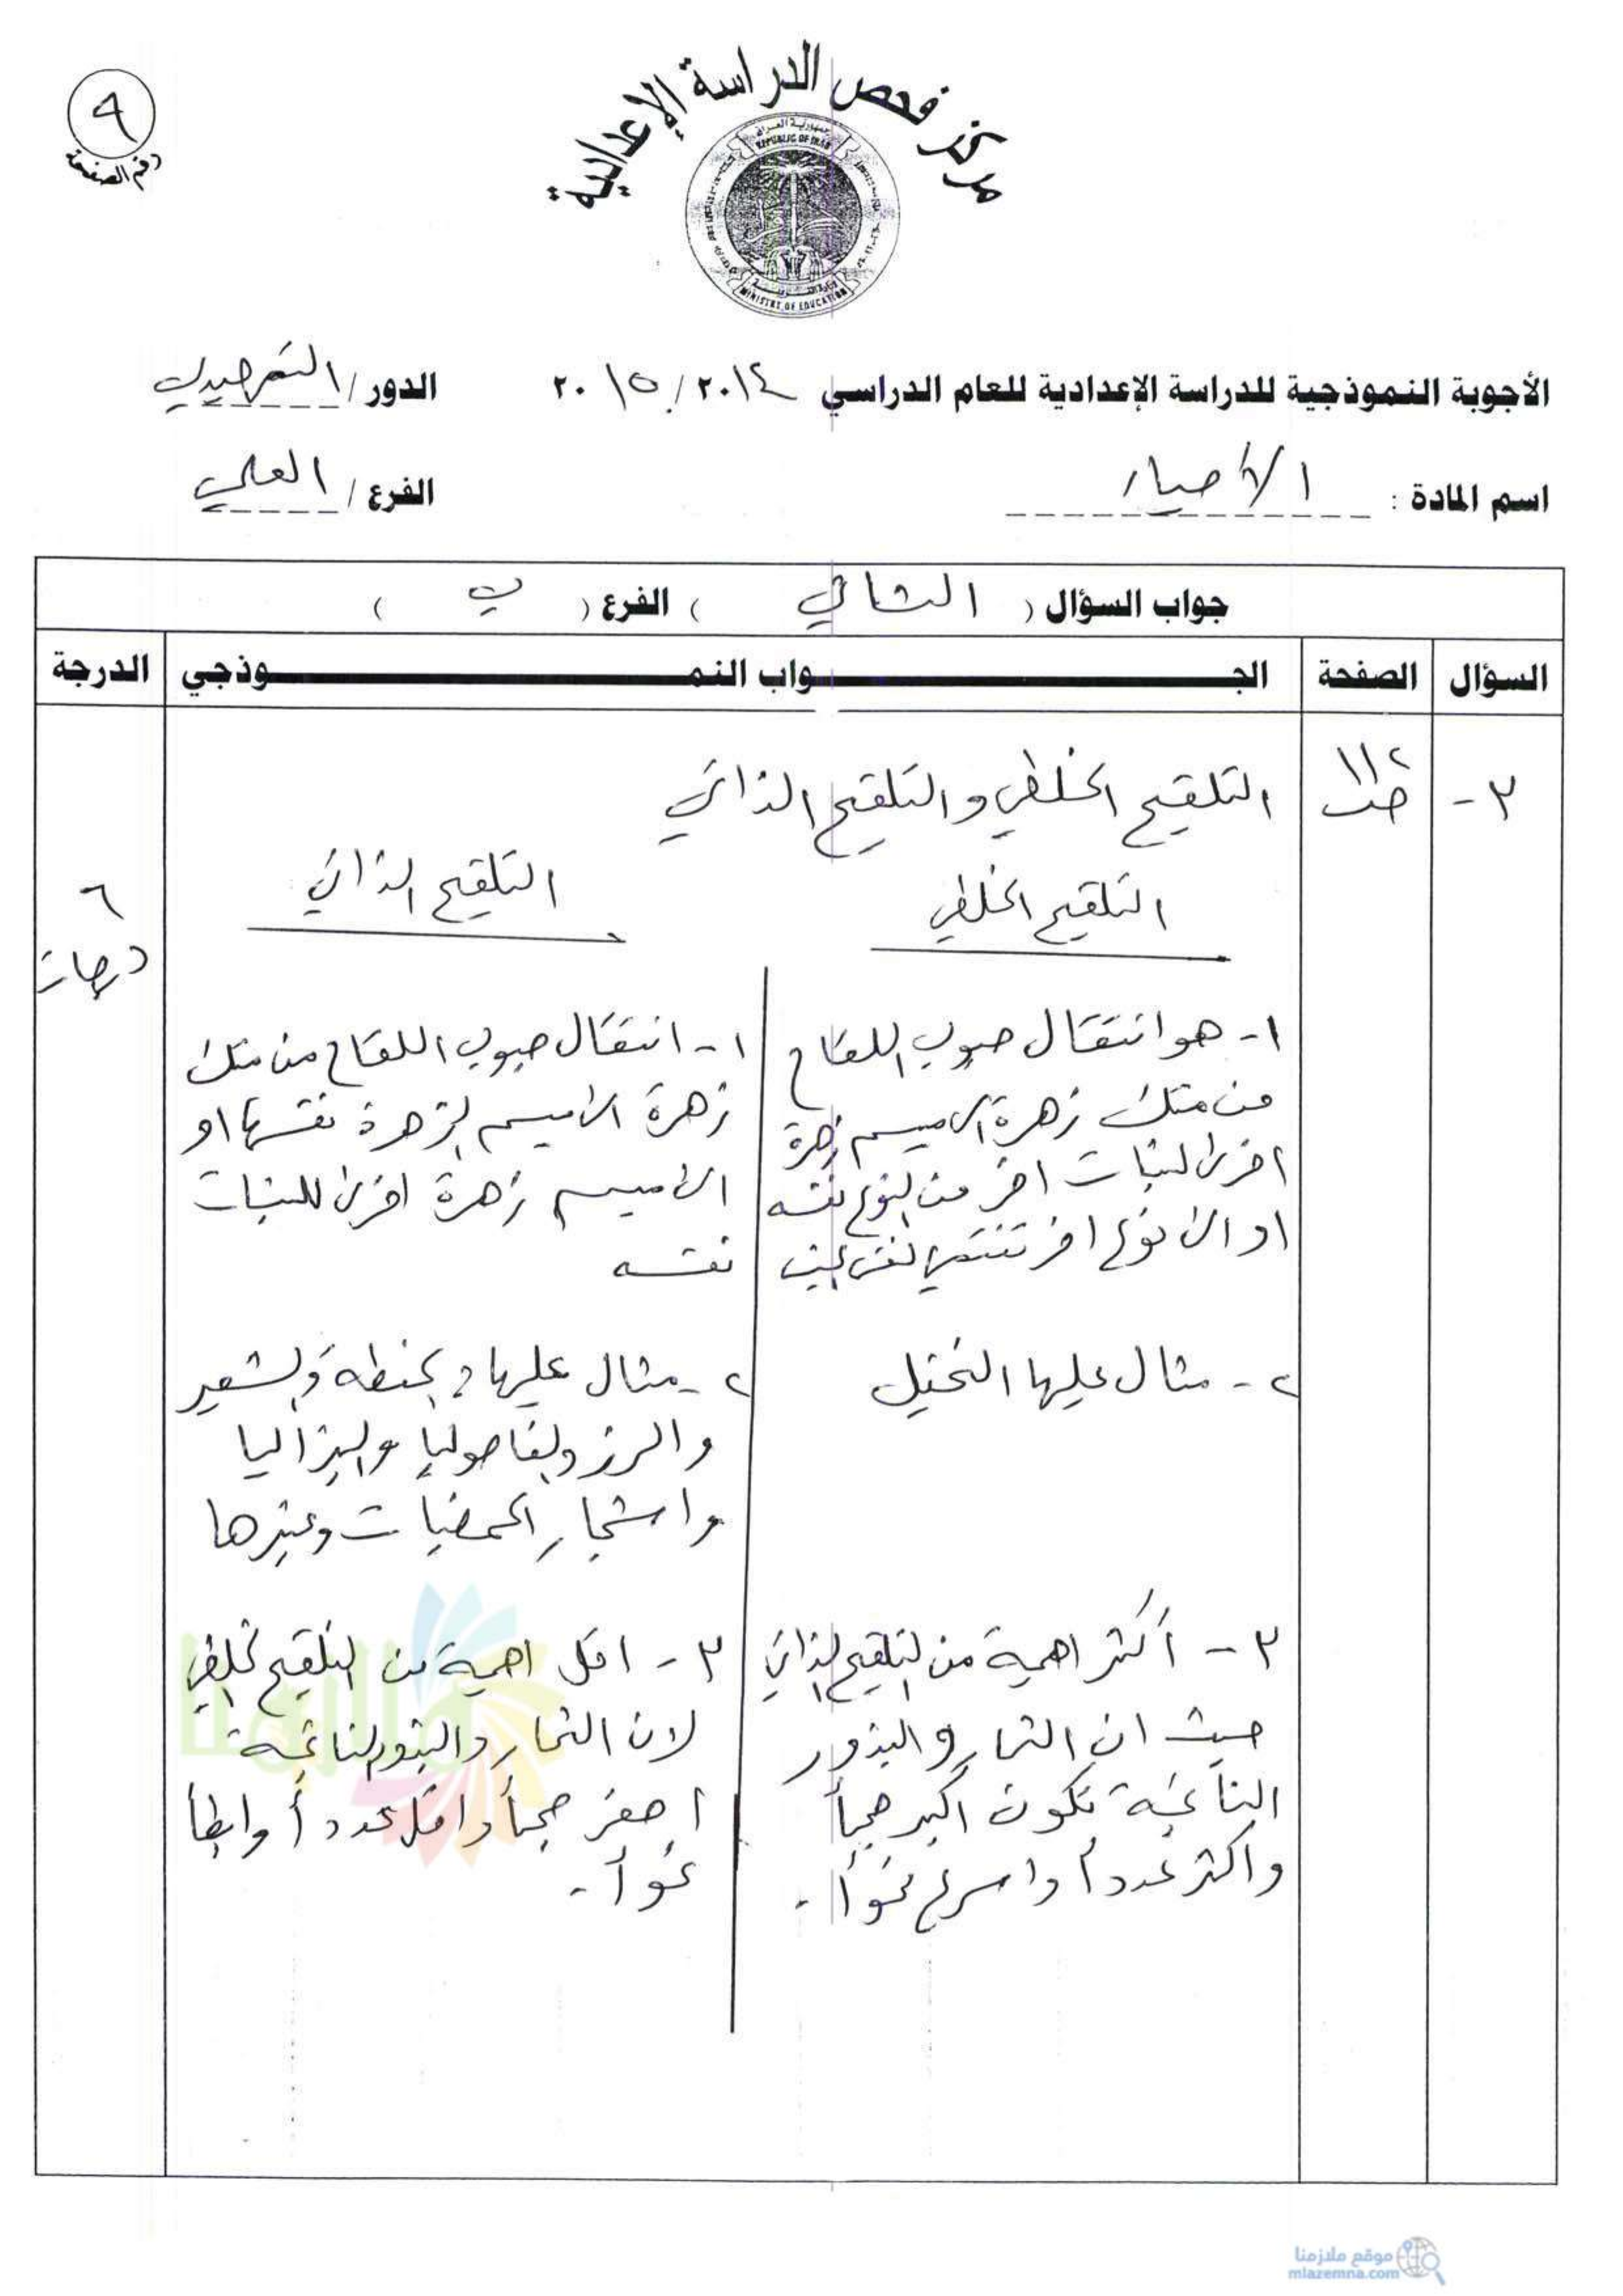 ٩
رقم الصفحة
مركز فحص الدراسة الإعدادية
جمهورية العراق
REPUBLIC OF IRAQ
MINISTRY OF EDUCATION
الأجوبة النموذجية للدراسة الإعدادية للعام الدراسي ٢٠١٤ / ٢٠١٥ الدور / التمهيدي
اسم المادة : الأحياء الفرع / العلمي
جواب السؤال ( الثاني ) الفرع ( ب )
السؤال الصفحة الجـواب النمـوذجي الدرجة
٣- ص ١١٢ التلقيح الخلطي والتلقيح الذاتي
التلقيح الخلطي التلقيح الذاتي
٦ درجات
١- هو انتقال حبوب اللقاح
من متك زهرة الى ميسم زهرة
اخرى لنبات اخر من النوع نفسه
او الى نوع اخر تنتمي لنفس الجنس
٢- مثال عليها النخيل
٣- أكثر اهمية من التلقيح الذاتي
حيث ان الثمار والبذور
الناتجة تكون اكبر حجماً
واكثر عدداً واسرع نمواً.
١- انتقال حبوب اللقاح من متك
زهرة الى ميسم الزهرة نفسها او
الى ميسم زهرة اخرى للنبات
نفسه
٢- مثال عليها الحنطة والشعير
والرز والفاصوليا والبزاليا
واشجار الحمضيات وغيرها
٣- اقل اهمية من التلقيح الخلطي
لان الثمار والبذور الناتجة
اصغر حجماً واقل عدداً وابطأ
نمواً.
موقع ملازمنا
mlazemna.com